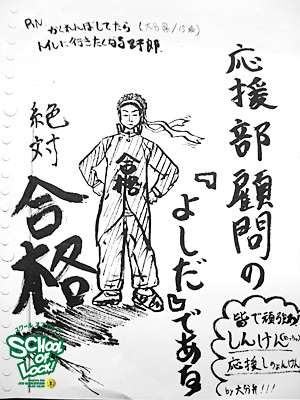 PN かくれんぼしてたら (大分県/15歳)
トイレに行きたくなる野郎
応援部顧問の
『よしだ』である
合格
絶対
合格
皆で頑張ろう
しんけん
応援しちょんけん
by大分弁!!!
SCHOOL
OF
LOCK!